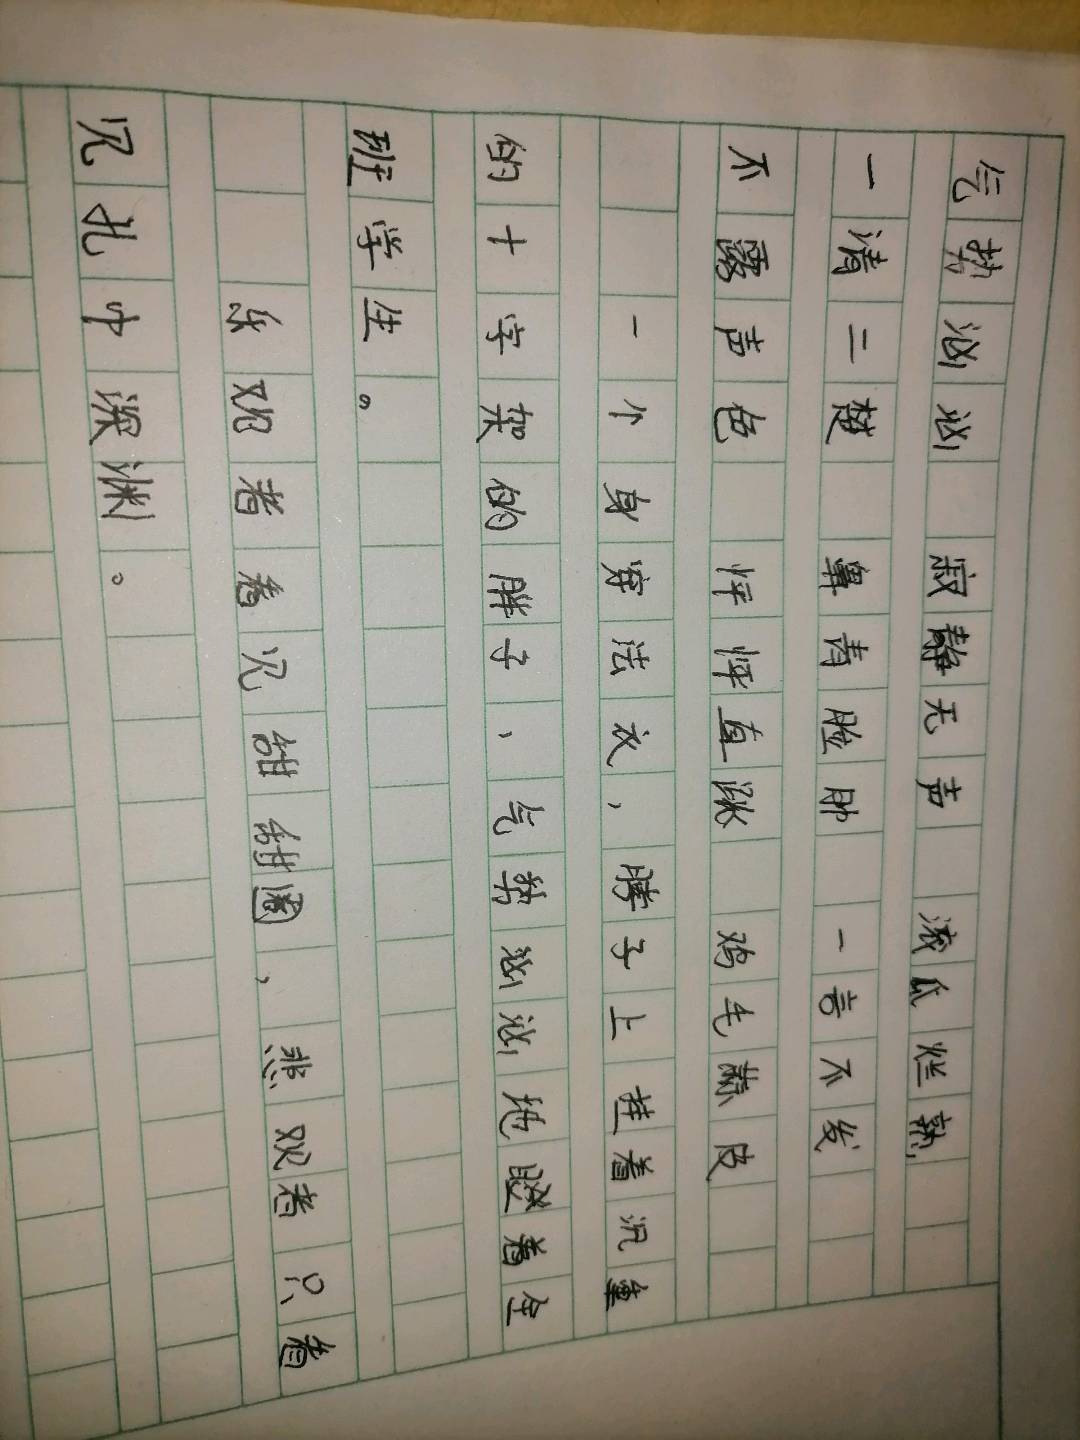 气势汹汹 寂静无声 滚瓜烂熟
一清二楚 鼻青脸肿 一言不发
不露声色 怦怦直跳 鸡毛蒜皮
一个身穿法衣,脖子上挂着沉重
的十字架的胖子、气势汹汹地盯着全
班学生。
乐观者看见甜甜圈,悲观者只看
见孔中深渊。